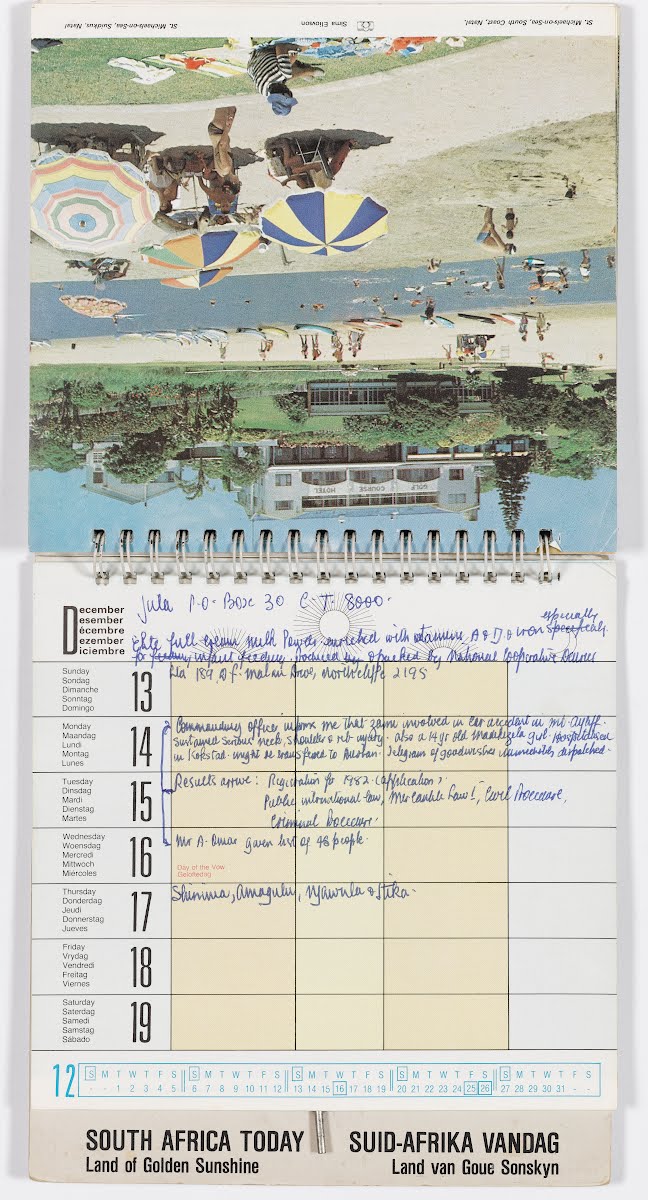 St. Michaels-on-Sea, South Coast, Natal. Sima Eliovson St. Michaels-on-Sea, Suidkus, Natal
GOLF COURSE HOTEL
December
Desember
Décembre
Dezember
Diciembre
Jula P.O. Box 30 C.T. 8000.
especially
full cream milk Powder enriched with vitamins A & D & iron
for infant feeding, produced & packed by National Cooperative Dairies
Sunday
Sondag
Dimanche
Sonntag
Domingo
13
189 D.F. Malan Drive, northcliffe 2195
Monday
Maandag
Lundi
Montag
Lunes
14
Commanding officer inform me that Zami involved in car accident in mt. Ayliff.
Sustained serious neck, shoulder & rib injury. also a 14 yr old Madikizela girl. Hospitalised
in Kokstad. might be transfered to Durban. Telegram of goodwishes immediately dispatched.
Tuesday
Dinsdag
Mardi
Dienstag
Martes
15
Results arrive: Registration for 1982 (application).
Public international law, Mercantile Law I, Civil Procedure,
Criminal Procedure.
Wednesday
Woensdag
Mercredi
Mittwoch
Miércoles
16
Mr A. Omar given list of 48 people.
Day of the Vow
Geloftedag
Thursday
Donderdag
Jeudi
Donnerstag
Jueves
17
Shinima, Amagulu, Njawula & Stika.
Friday
Vrydag
Vendredi
Freitag
Viernes
18
Saturday
Saterdag
Samedi
Samstag
Sábado
19
12
S M T W T F S S M T W T F S S M T W T F S S M T W T F S S M T W T F S
- - 1 2 3 4 5 6 7 8 9 10 11 12 13 14 15 16 17 18 19 20 21 22 23 24 25 26 27 28 29 30 31 - -
SOUTH AFRICA TODAY SUID-AFRIKA VANDAG
Land of Golden Sunshine Land van Goue Sonskyn